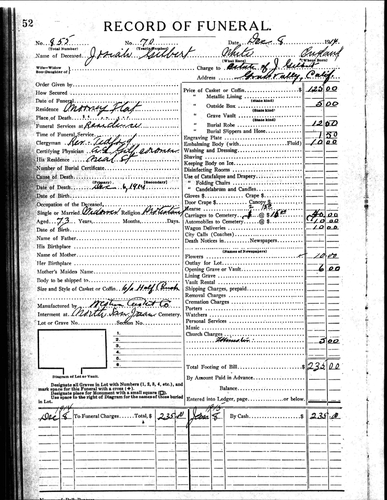 52
RECORD OF FUNERAL.
No. 855 No. 70 Date, Dec 8 1914
(Total Number) (Yearly Number)
Josiah Gilbert White England
Wife—Widow
Son (Daughter) of
Charge to Estate of J. Gilbert
Address Grass Valley, Calif.
Order Given by
How Secured
Date of Funeral
Residence Mooney Flat
Place of Death
Funeral Services at Residence
Time of Funeral Service
Clergyman Rev.
Certifying Physician
His Residence
Number of Burial Certificate
Cause of Death
Date of Death Dec 6, 1914
Occupation of the Deceased
Single or Married Widower Religion Protestant
Aged 73 Years, Months, Days.
Name of Father
His Birthplace
Name of Mother
Her Birthplace
Mother's Maiden Name
Body to be shipped to
Size and Style of Casket or Coffin 6/0 Half Couch
Manufactured by Western Casket Co
Interment at North San Juan Cemetery.
Lot or Grave No. Section No.
Diagram of Lot or Vault.
Designate all Graves in Lot with Numbers (1, 2, 3, 4, etc.), and
mark space for this Funeral with a cross (+).
Designate place for Monument with a small square (□).
Use space to right of Diagram for the names of those buried
in Lot.
Price of Casket or Coffin $ 125 00
" Metallic Lining
(State kind)
" Outside Box 5 00
(State kind)
" Grave Vault
(State kind)
" Burial Robe 12 50
(State kind)
" Burial Slippers and Hose
Engraving Plate 1 50
Embalming Body (with Fluid) 10 00
Washing and Dressing
Shaving
Keeping Body on Ice
Disinfecting Rooms
Use of Catafalque and Drapery
" Folding Chairs
" Candelabrum and Candles
Gloves $ Crape $
Door Crape $ Canopy $
Hearse
Carriages to Cemetery @ $
Automobiles to Cemetery @ $ 10 00
Wagon Deliveries 10 00
City Calls (Coaches)
Death Notices in Newspapers
(Names of Newspapers)
Flowers 10 00
Outlay for Lot
Opening Grave or Vault 6 00
Lining Grave
Vault Rental
Shipping Charges, prepaid
Removal Charges
Cremation Charges
Porters
Watchers
Personal Services
Music
Church Charges
Minister 5 00
Total Footing of Bill $ 235 00
By Amount Paid in Advance
Balance
Entered into Ledger, page or below.
1914
Dec 8 To Funeral Charges Total, $ 235 00 Jan 8 By Cash $ 235 00